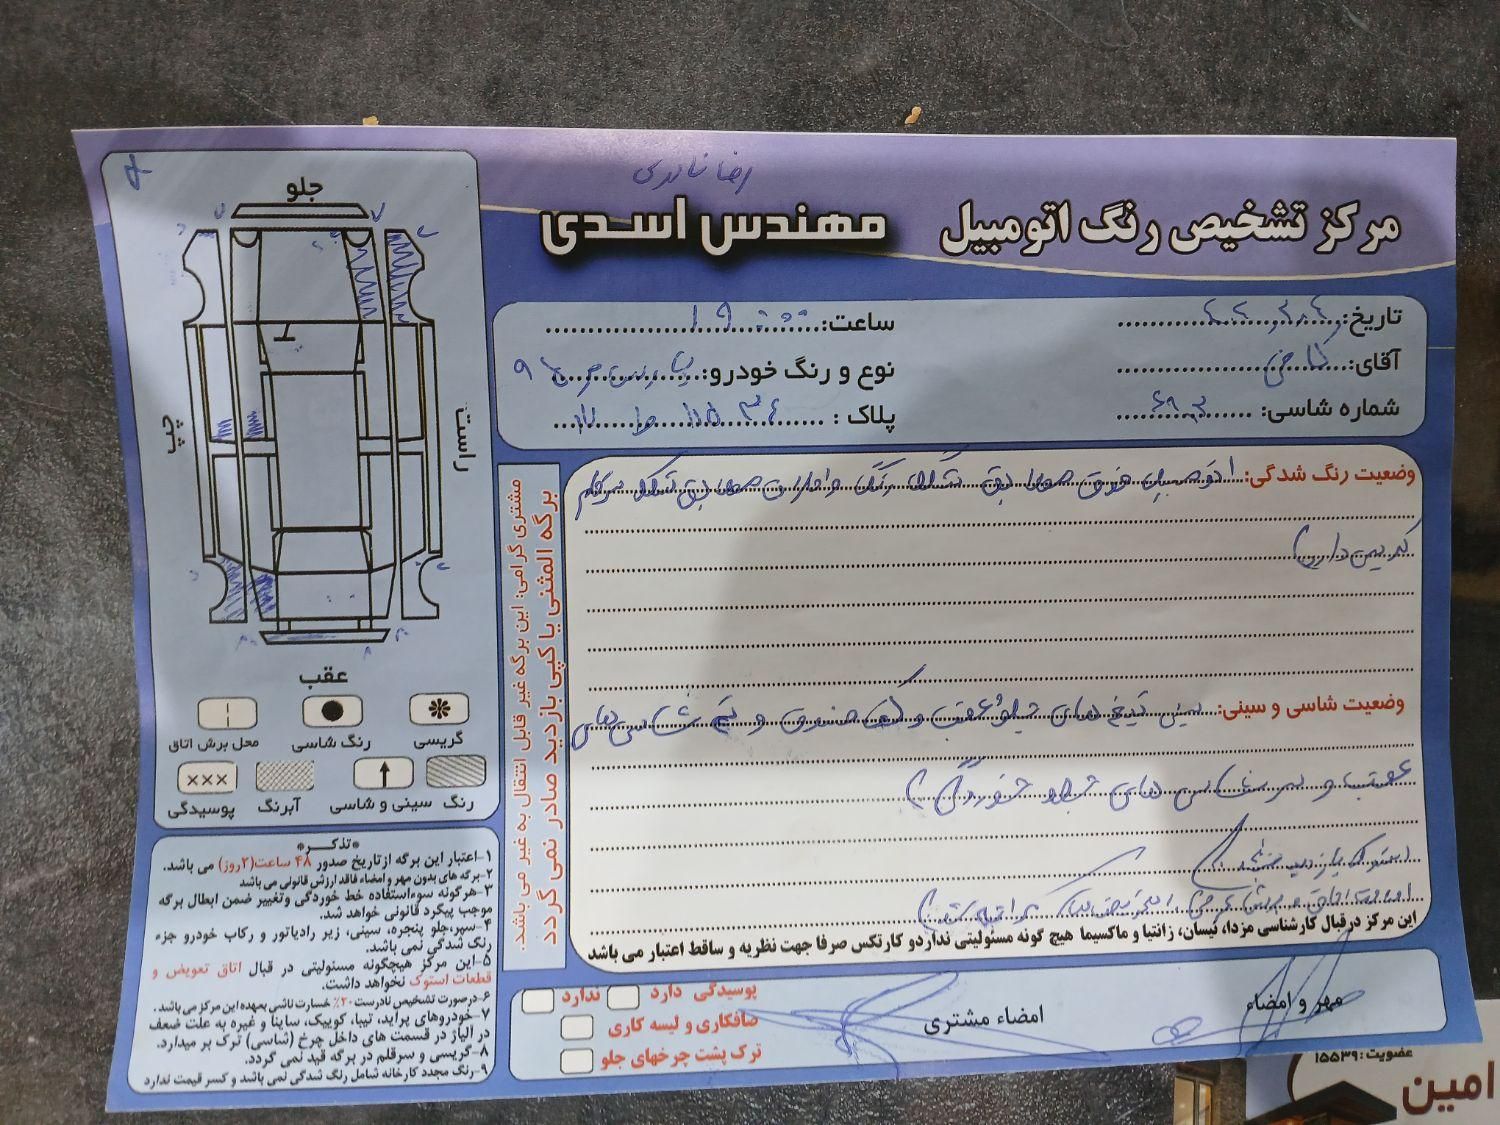 رضا نادری
مرکز تشخیص رنگ اتومبیل مهندس اسدی
تاریخ:
ساعت:
آقای:
نوع و رنگ خودرو: پارس
شماره شاسی: ۶۹۰۳
پلاک :
جلو
چپ
راست
عقب
گریسی
رنگ شاسی
محل برش اتاق
رنگ
سینی و شاسی
آبرنگ
پوسیدگی
مشتری گرامی: این برگه غیر قابل انتقال به غیر می باشد.
برگه المثنی یا کپی بازدید صادر نمی گردد
وضعیت رنگ شدگی: اتومبیل فوق مطابق شکل رنگ
دارد
وضعیت شاسی و سینی: سینی های جلو عقب و کف صندوق و شاسی های
عقب و سرشاسی های جلو خوردگی
این مرکز درقبال کارشناسی مزدا، نیسان، زانتیا و ماکسیما هیچ گونه مسئولیتی نداردو کارتکس صرفا جهت نظریه و ساقط اعتبار می باشد
*تذکـــر*
۱-اعتبار این برگه ازتاریخ صدور ۴۸ ساعت(۲روز) می باشد.
۲-برگه های بدون مهر و امضاء فاقد ارزش قانونی می باشد
۳-هرگونه سوءاستفاده خط خوردگی وتغییر ضمن ابطال برگه
موجب پیگرد قانونی خواهد شد.
۴-سپر،جلو پنجره، سینی، زیر رادیاتور و رکاب خودرو جزء
رنگ شدگی نمی باشد.
۵-این مرکز هیچگونه مسئولیتی در قبال اتاق تعویض و
قطعات استوک نخواهد داشت.
۶-درصورت تشخیص نادرست ۲۰٪ خسارت ناشی بعهده این مرکز می باشد.
۷-خودروهای پراید، تیبا، کوییک، ساینا و غیره به علت ضعف
در آلیاژ در قسمت های داخل چرخ (شاسی) ترک بر میدارد.
۸-گریسی و سرقلم در برگه قید نمی گردد.
۹-رنگ مجدد کارخانه شامل رنگ شدگی نمی باشد و کسر قیمت ندارد
پوسیدگی دارد ندارد
صافکاری و لیسه کاری
ترک پشت چرخهای جلو
امضاء مشتری
مهر و امضاء
عضویت: ۱۵۵۳۹
امین